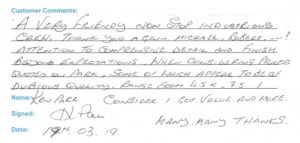 Customer Comments:
A VERY FRIENDLY NON STOP INDUSTRIOUS
CREW. THANK YOU AGAIN MICHAEL, ROBBIE....?
ATTENTION TO COMPREHENSIVE DETAIL AND FINISH
BEYOND EXPECTATIONS. WHEN CONSIDERING PRICES
QUOTED ON PARK, SOME OF WHICH APPEAR TO BE OF
DUBIOUS QUALITY, RANGE FROM 4.5K, 7.5 !
Name: KEN PARR CONSIDER I GOT VALUE AND MORE.
Signed:
MANY, MANY THANKS.
Date: 19TH 03. 19.